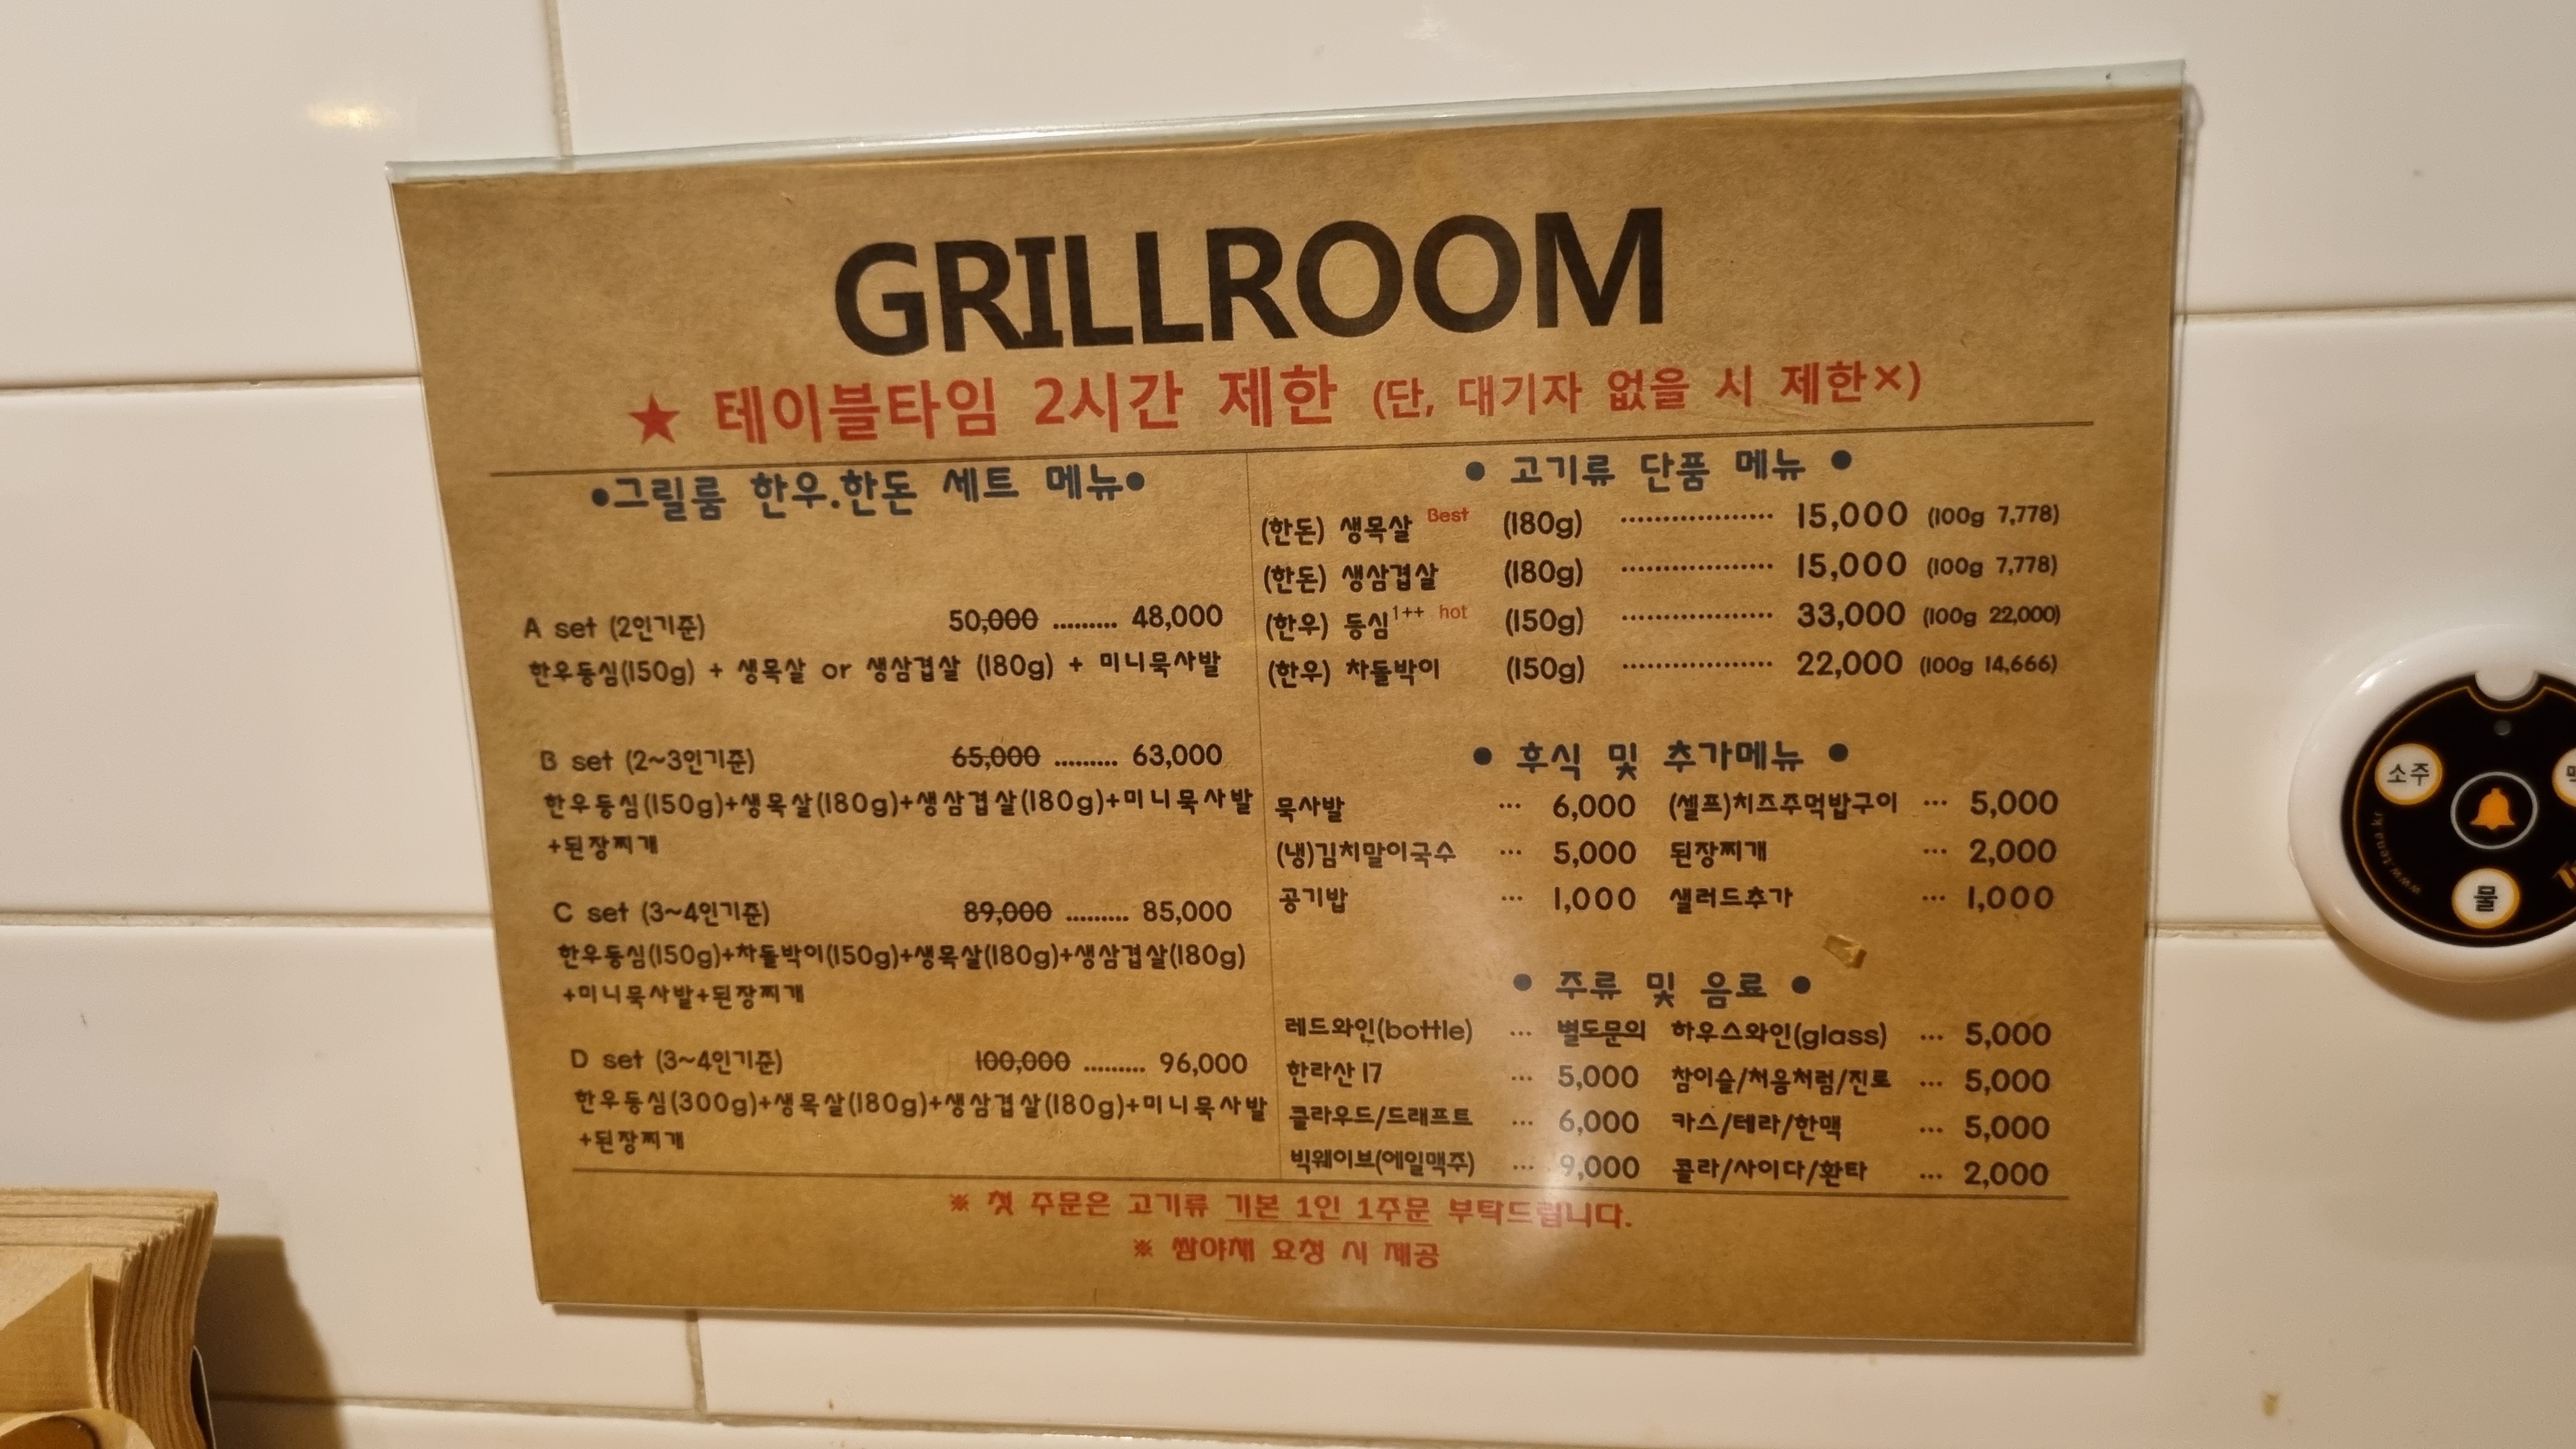 GRILLROOM
★ 테이블타임 2시간 제한 (단, 대기자 없을 시 제한×)
●그릴룸 한우.한돈 세트 메뉴●
A set (2인기준) 50,000 ......... 48,000
한우등심(150g) + 생목살 or 생삼겹살 (180g) + 미니묵사발
B set (2~3인기준) 65,000 ......... 63,000
한우등심(150g)+생목살(180g)+생삼겹살(180g)+미니묵사발
+된장찌개
C set (3~4인기준) 89,000 ......... 85,000
한우등심(150g)+차돌박이(150g)+생목살(180g)+생삼겹살(180g)
+미니묵사발+된장찌개
D set (3~4인기준) 100,000 ......... 96,000
한우등심(300g)+생목살(180g)+생삼겹살(180g)+미니묵사발
+된장찌개
● 고기류 단품 메뉴 ●
(한돈) 생목살 Best (180g) .................. 15,000 (100g 7,778)
(한돈) 생삼겹살 (180g) .................. 15,000 (100g 7,778)
(한우) 등심1++ hot (150g) .................. 33,000 (100g 22,000)
(한우) 차돌박이 (150g) .................. 22,000 (100g 14,666)
● 후식 및 추가메뉴 ●
묵사발 ... 6,000 (셀프)치즈주먹밥구이 ... 5,000
(냉)김치말이국수 ... 5,000 된장찌개 ... 2,000
공기밥 ... 1,000 샐러드추가 ... 1,000
● 주류 및 음료 ●
레드와인(bottle) ... 별도문의 하우스와인(glass) ... 5,000
한라산 17 ... 5,000 참이슬/처음처럼/진로 ... 5,000
클라우드/드래프트 ... 6,000 카스/테라/한맥 ... 5,000
빅웨이브(에일맥주) ... 9,000 콜라/사이다/환타 ... 2,000
※ 첫 주문은 고기류 기본 1인 1주문 부탁드립니다.
※ 쌈야채 요청 시 제공
소주
물
www.tena.kr